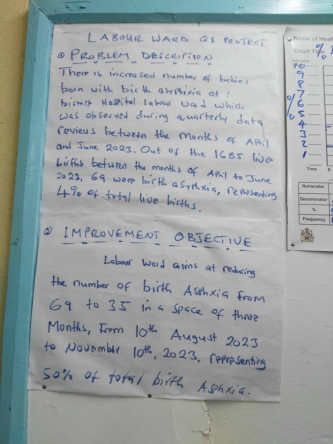 LABOUR WARD QI PROJECT
① PROBLEM DESCRIPTION
There is increased number of babies
born with birth asphyxia at
District Hospital labour ward which
was observed during quarterly data
reviews between the months of April
and June 2023. Out of the 1685 live
births between the months of April to June
2023, 69 were birth asphyxia, representing
4% of total live births.
② IMPROVEMENT OBJECTIVE
Labour Ward aims at reducing
the number of birth Asphxia from
69 to 35 in a space of three
Months, from 10th August 2023
to November 10th, 2023, representing
50% of total birth Asphxia.
Name of Heal
Chart Title
%
10
9
8
7
6
5
4
3
2
1
%
Time
Numerator
Denominator
%
Frequency